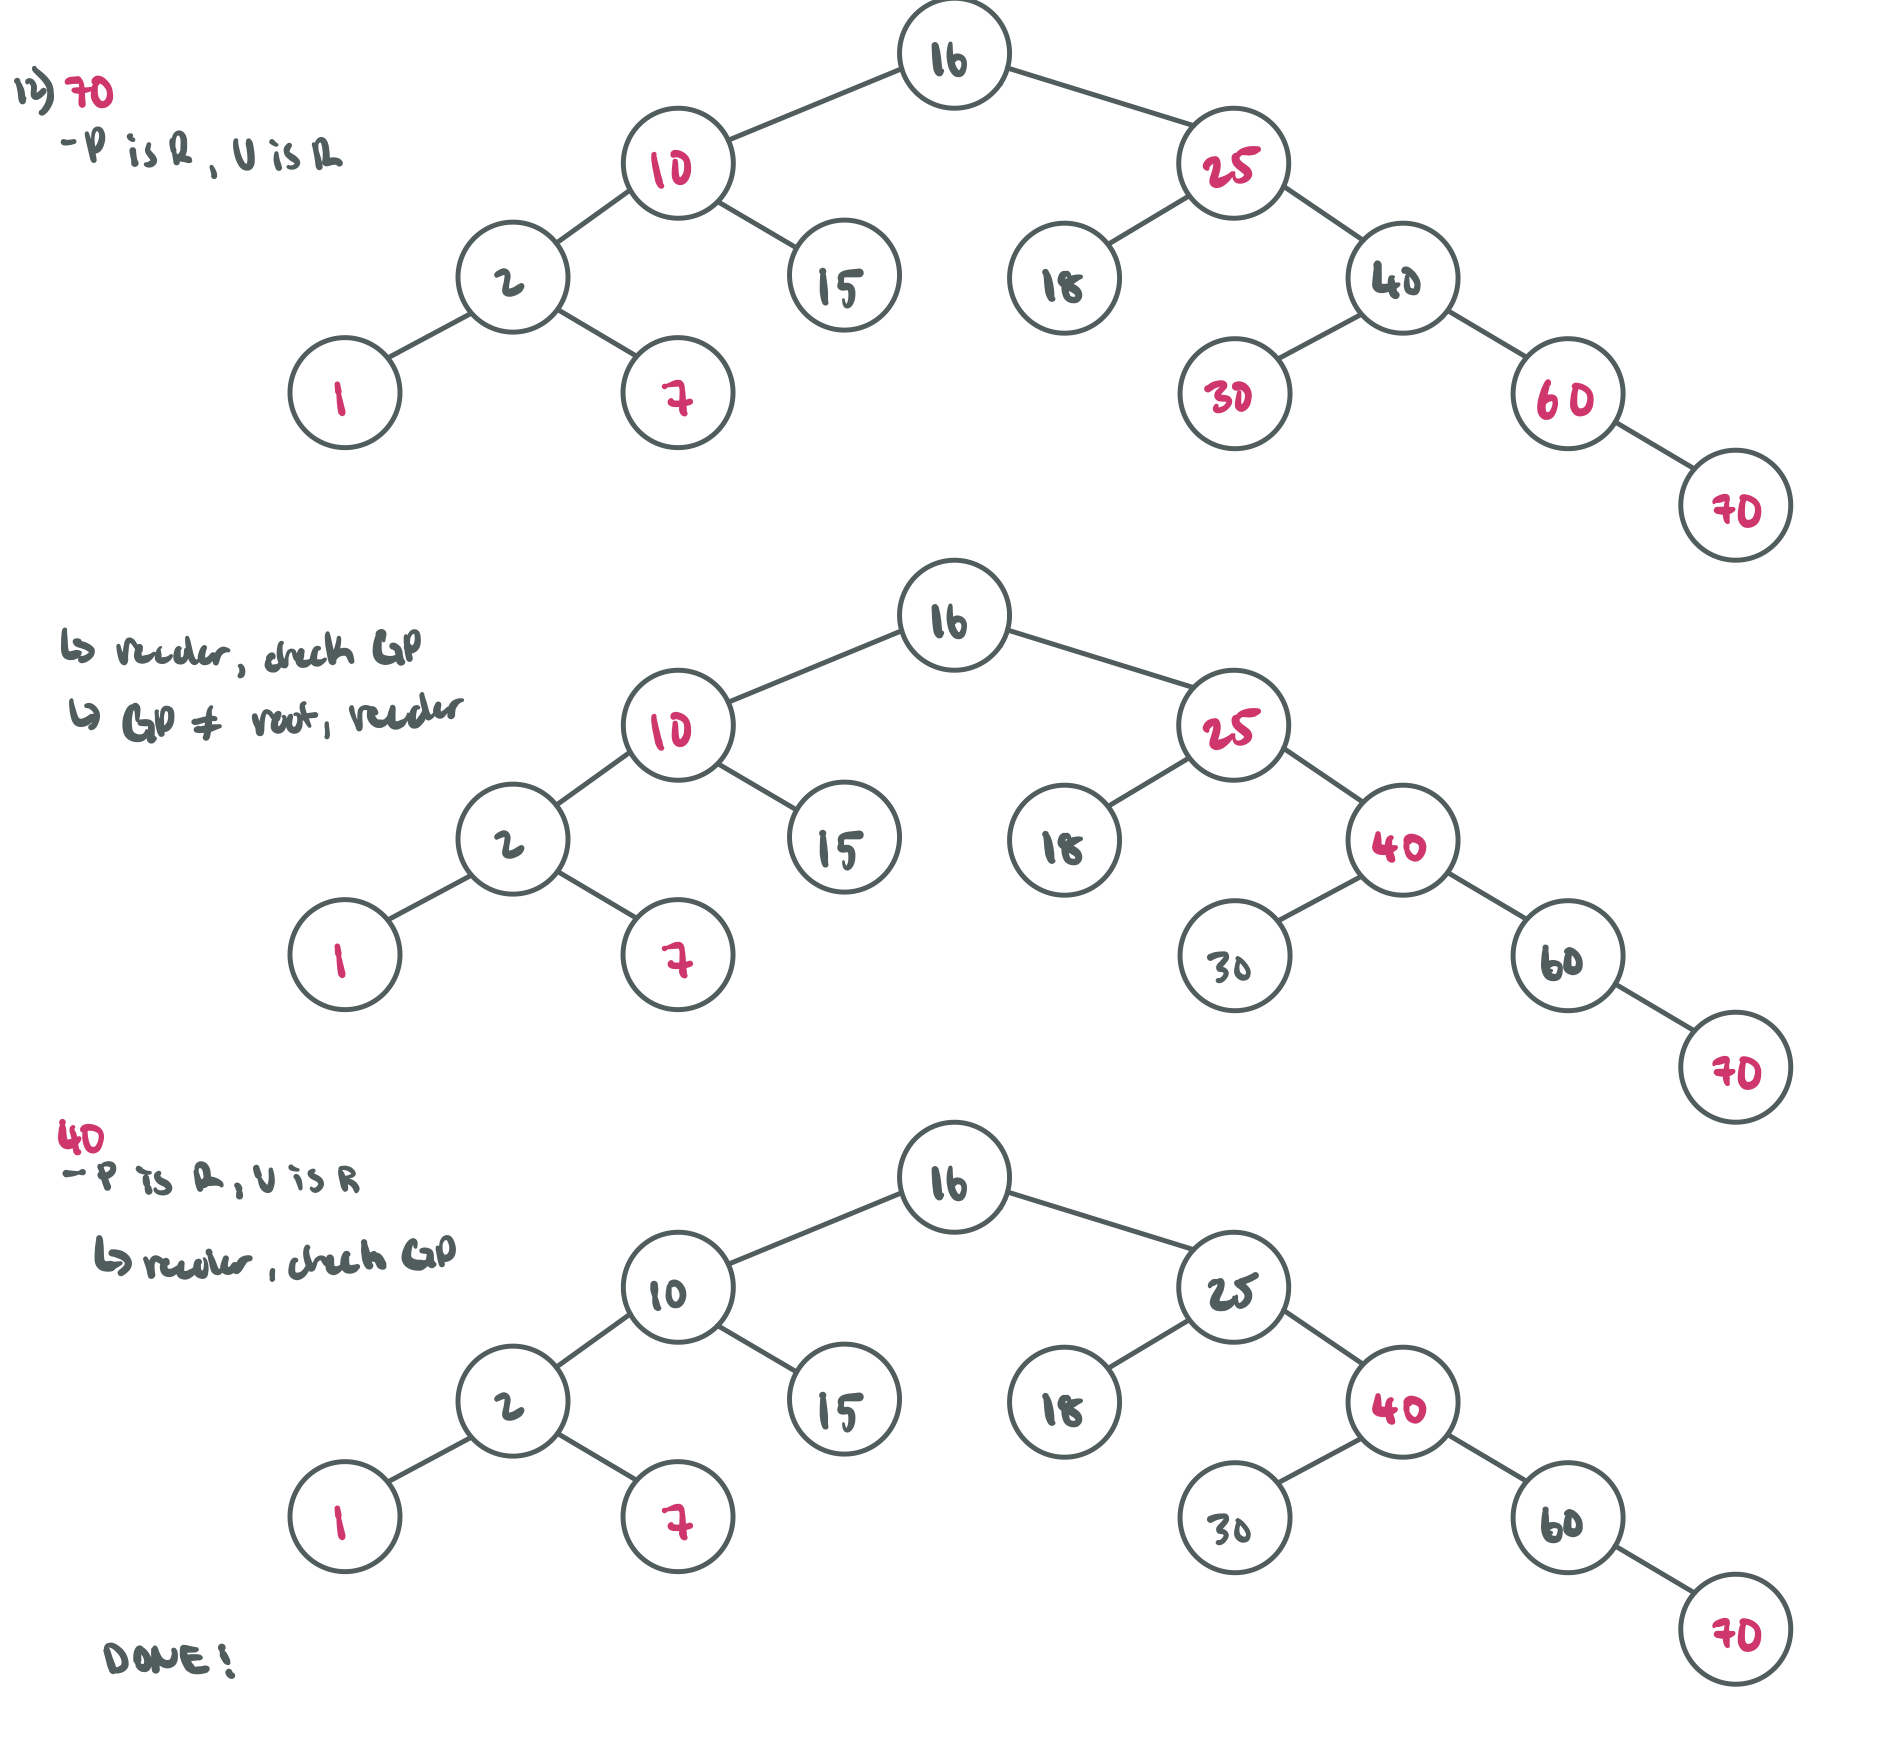 12) 70
- P is R, U is R
16
10 25
2 15 18 40
1 7 30 60
70
↳ recolor, check GP
↳ GP ≠ root, recolor
16
10 25
2 15 18 40
1 7 30 60
70
40
- P is R, U is R
↳ recolor, check GP
16
10 25
2 15 18 40
1 7 30 60
70
DONE!